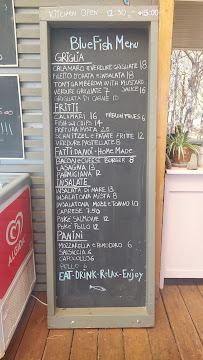 KITCHEN OPEN 12:30 15:00
BLUEFISH MENU
GRIGLIA
CALAMARO E VERDURE GRIGLIATE 18
FILETTO D'ORATA E INSALATA 18
GAMBERONI WITH MUSTARD
VERDURE GRIGLIATE 7 SAUCE 16
GRIGLIATA DI CARNE 18
FRITTI
CALAMARI 16
14
FRITTURA MISTA
SCHNITZEL E PATATE FRITTE 12
VERDURE PASTELLATE 8
FATTI DA NOI - HOME MADE
BACON E CHEESE BURGER 8
LASAGNA 13
PARMIGIANA 12
INSALATE
INSALATA DI MARE 13
INSALATONA MISTA 8
INSALATONA MOZZ. E TONNO 10
CAPRESE 7.50
POKE SALMONE 12
POKE POLLO 12
PANINI
MOZZARELLA E POMODORO 6
SALSICCIA 6
CAPOCOLLO 6
POLLO
EAT-DRINK-RELAX-ENJOY
ALGIDA